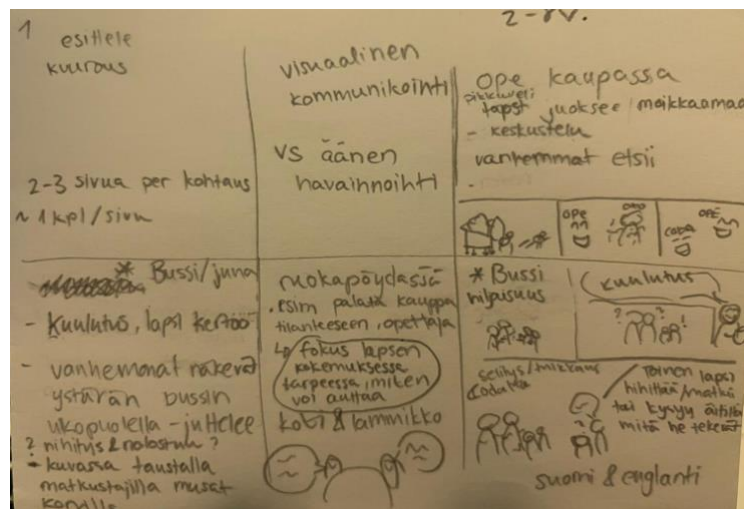 1
2-8v.
esittele
kuurous
2-3 sivua per kohtaus
~ 1 kpl/sivu
visuaalinen
kommunikointi
vs äänen
havainnointi
ope kaupassa
pikkuveli
lapset juoksee moikkaamaa
- keskustelu
vanhemmat etsii
ope
ope
* Bussi/juna
- kuulutus, lapsi kertoo
- vanhemmat näkevät
ystävän bussin
ulkopuolella - juttelee
? nihitys & nolostuu?
- kuvassa taustalla
matkustajilla musat
korvilla
ruokapöydässä
. esim palata kauppa
tilanteeseen, opettaja
↳ fokus lapsen
kokemuksessa
tarpeessa, miten
voi auttaa
koti & lammikko
* Bussi
hiljaisuus
kuulutus
? ? !
selitys/
toinen lapsi
tai kysyy äidiltä
mitä he tekevät
suomi & englanti